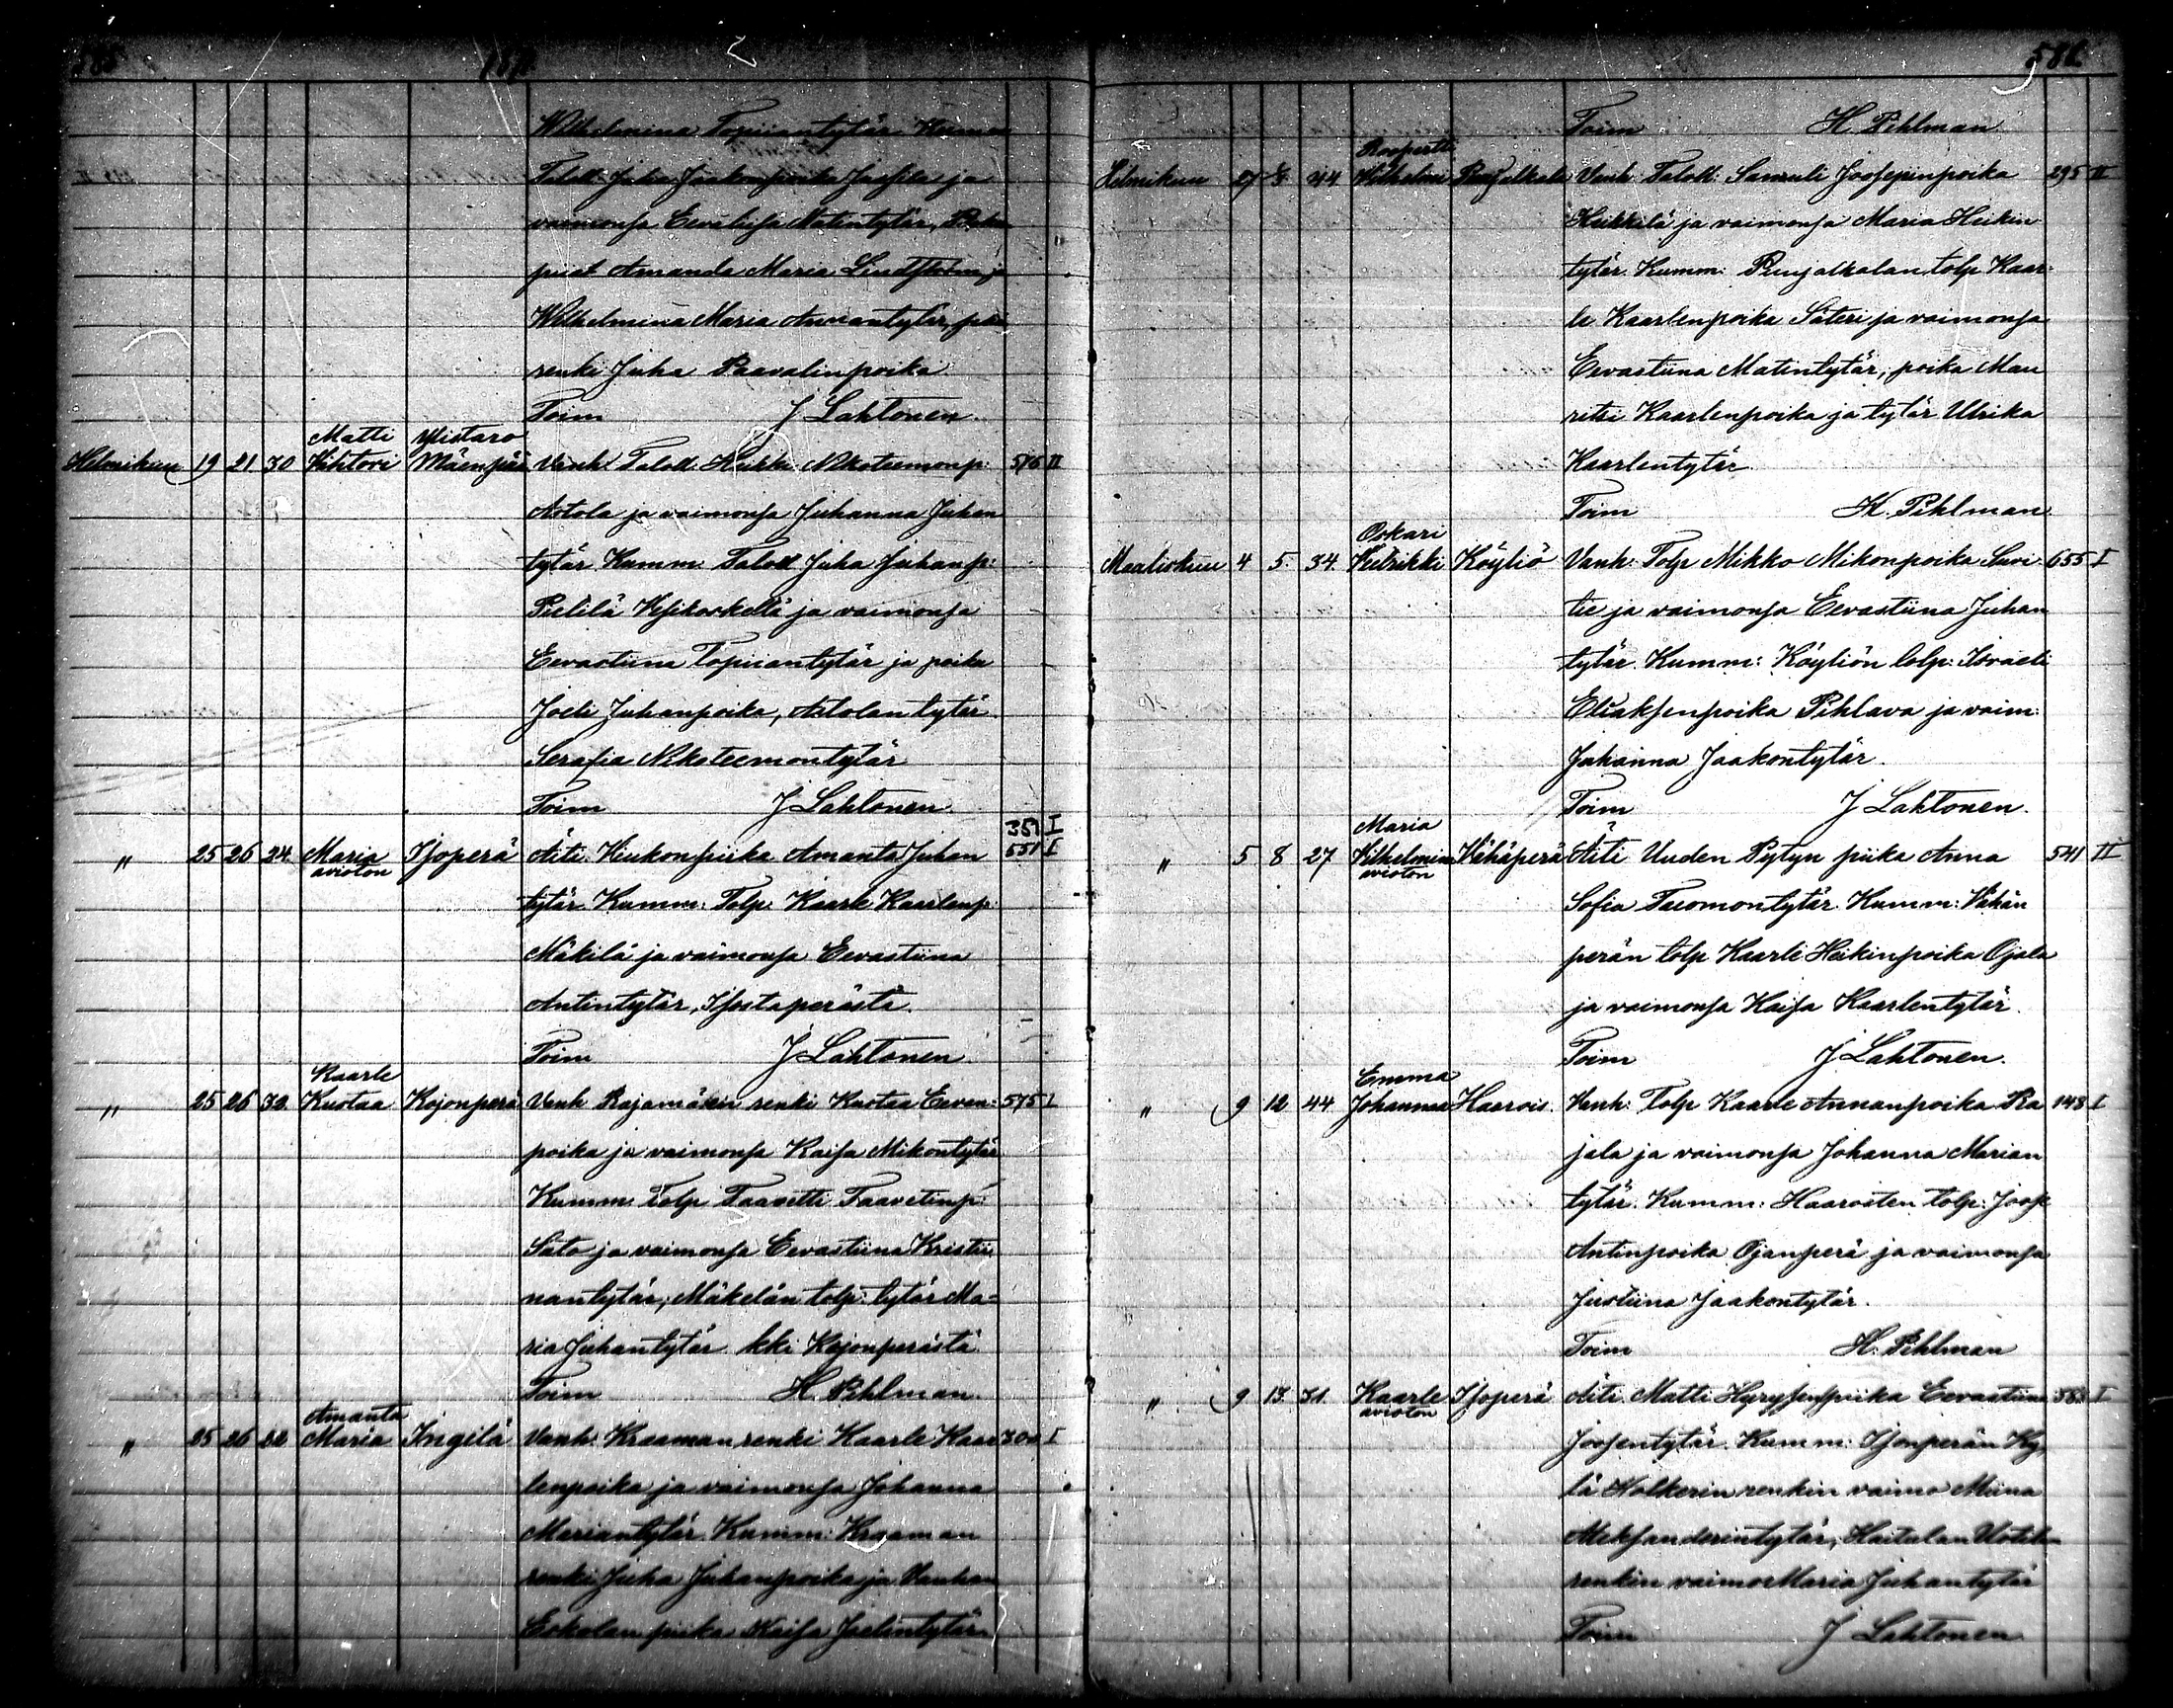 585
187
Wilhelmina Topiiantytär
Taloll. Juha Jaakonpoika Jussila ja
vaimonsa Eevaliisa Matintytär,
piiat Amanda Maria Lindström ja
Wilhelmina Maria Annantytär,
renki Juha Paavalinpoika
Toim J Lahtonen.
Matti Ylistaro
Helmikuu 19 21 30 Vihtori Mäenpää Vanh. Taloll. Heikki Nikoteemonp: 576 II
Astola ja vaimonsa Juhanna Juhan
tytär Kumm: Taloll Juha Juhanp:
Pietilä Vesikoskelta ja vaimonsa
Eevastiina Topiiantytär ja poika
Joeli Juhanpoika, Astolan tytär
Serafia Nikoteemontytär
Toim J Lahtonen.
351 I
" 25 26 24 Maria Isoperä Äiti: Kiukonpiika Amanta Juhan 551 I
avioton
tytär. Kumm: Tolp. Kaarle Kaarlenp:
Mäkilä ja vaimonsa Eevastiina
Antintytär, Isostaperästä.
Toim J Lahtonen.
Kaarle
" 25 26 32 Kustaa Kojonperä Vanh Rajamäen renki Kustaa Eevan: 575 I
poika ja vaimonsa Kaisa Mikontytär
Kumm: Tolp Taavetti Taavetinp:
Sato ja vaimonsa Eevastiina Kristii
nantytär, Mäkelän tolp: tytär Ma-
ria Juhantytär kki Kojonperästä.
Toim H. Pihlman.
Amanta
" 25 26 22 Maria Ingilä Vanh: Kraaman renki Kaarle Kaar 300 I
lenpoika ja vaimonsa Johanna
Mariantytär. Kumm: Kraaman
renki Juha Juhanpoika ja Vanhan
Eskolan piika Kaisa Joelintytär
586
Toim H. Pihlman
Roopertti
Helmikuu 27 44 Vilhelmi Vanh: Taloll: Samuli Joosepinpoika 295 II
Heikkilä ja vaimonsa Maria Heikin
tytär. Kumm: Runjalkalan tolp Kaar-
le Kaarlenpoika Säteri ja vaimonsa
Eevastiina Matintytär, poika Mau
ritsi Kaarlenpoika ja tytär Ulrika
Kaarlentytär.
Toim H. Pihlman
Oskari
Maaliskuu 4 5. 34. Vietrikki Köyliö Vanh: Tolp Mikko Mikonpoika Suvi- 655 I
tie ja vaimonsa Eevastiina Juhan
tytär. Kumm: Köyliön tolp: Israeli
Eliaksenpoika Pihlava ja vaim:
Juhanna Jaakontytär.
Toim J Lahtonen.
Maria
" 5 8 27 Vilhelmina Vähäperä Äiti Uuden Pytyn piika Anna 541 II
avioton
Sofia Tuomontytär. Kumm: Vähän
perän tolp Kaarle Heikinpoika Ojala
ja vaimonsa Kaisa Kaarlentytär.
Toim J Lahtonen.
Emma
" 9 12 44 Johanna Haarois. Vanh: Tolp Kaarle Annanpoika Ra 148 I
jala ja vaimonsa Johanna Marian
tytär. Kumm: Haaroisten tolp: Joosep
Antinpoika Ojanperä ja vaimonsa
Justiina Jaakontytär.
Toim H. Pihlman
" 9 13 31 Kaarle Isoperä Äiti Matti Hyrysen piika Eevastiina I
avioton
Joosentytär. Kumm: Isonperän Ky,
lä Holkerin renkin vaimo Miina
Aleksanderintytär, Haitulan
renkin vaimo Maria Juhantytär
Toim J Lahtonen